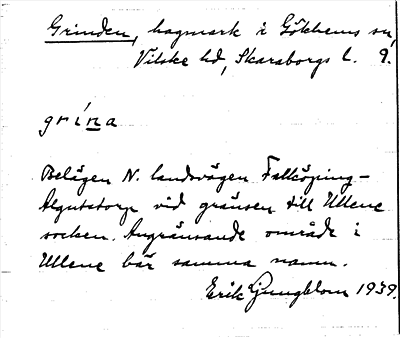 Grinden, hagmark i Gökhems sn,
Vilske hd, Skaraborgs l. 9.
grína
Belägen N. landsvägen Falköping-
Algutstorp vid gränsen till Ullene
socken. Angränsande område i
Ullene bär samma namn.
Erik Ljungblom 1939.